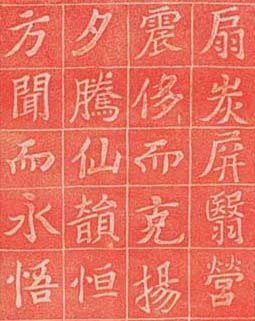 扇炭屏翳營
震侈而克揚
夕騰仙韻恒
方聞而永悟